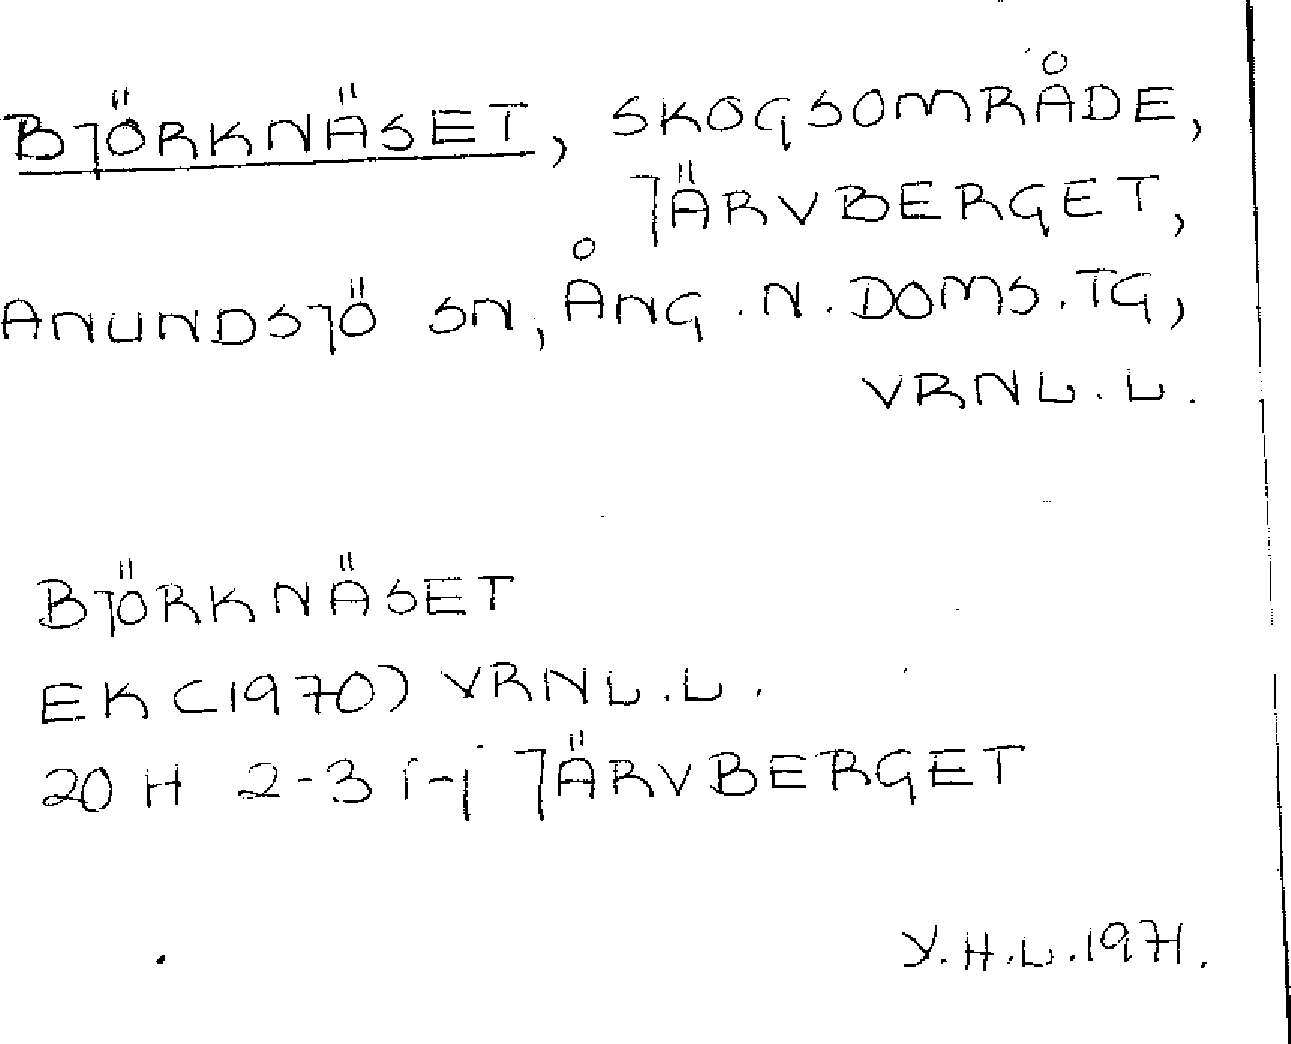 BJÖRKNÄSET, SKOGSOMRÅDE,
JÄRVBERGET,
ANUNDSJÖ SN, ÅNG. N. DOMS. TG,
VRNL. L.
BJÖRKNÄSET
EK (1970) VRNL. L.
20 H 2-3 i-j JÄRVBERGET
Y. H. L. 1971.